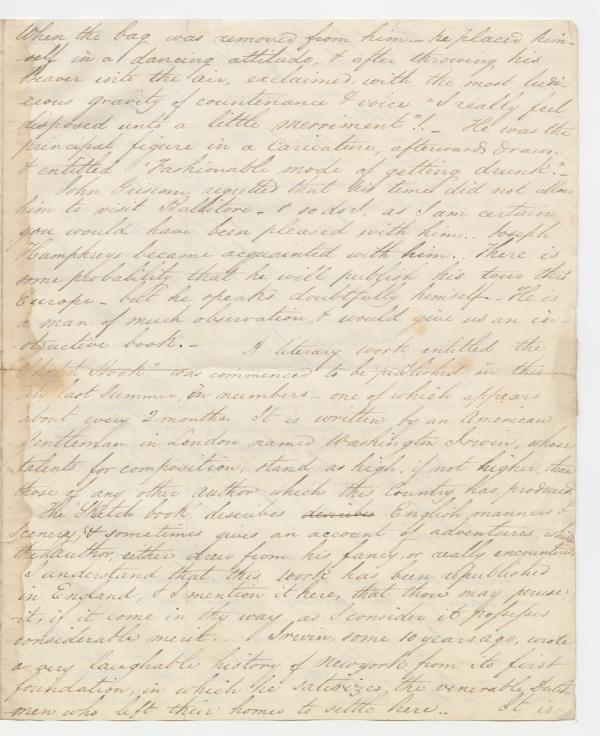 When the bag was removed from him. – he placed him-
-self in a dancing attitude, & after throwing his
Beaver into the air, exclaimed, with the most ludi-
crous gravity of countenance & voice "I really feel
disposed unto a little merriment"! – He was the
principal figure in a Caricature, afterwards drawn
& entitled "Fashionable mode of getting drunk." –
John Griscom, regretted that his time did not allow
him to visit Ballitore – & so do I, as I am certain
you would have been pleased with him. – Joseph
Humphreys became acquainted with him. There is
some probability that he will publish his tour thro
Europe – but he speaks doubtfully himself – He is
a man of much observation & would give us an in-
structive book. – A literary work entitled the
Book" was commenced to be published in this
last Summer, in numbers – one of which appears
about every 2 months. It is written by an American
Gentleman in London named Washington Irwin, whose
talents for composition, stand as high, if not higher, than
those of any other author which this Country has produced
The Sketch book, descibes describes English manners &
Scenery, & sometimes gives an account of adventures, which
the author either drew from his fancy, or really encountered.
I understand that this work has been republished
in England, & I mention it here, that thou may peruse
it, if it come in thy way, as I consider it possesses
considerable merit. – Irwin, some 10 years ago, wrote
a very laughable history of Newyork from its first
foundation, in which he satirizes, the venerable Dutch
men who left their homes to settle here. – It is